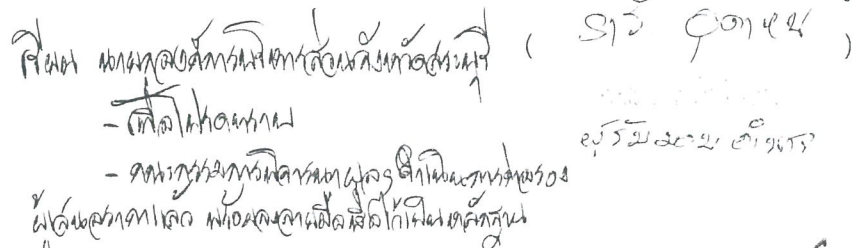 เรียน นายกองค์การบริหารส่วนจังหวัดสระบุรี
- เพื่อโปรดทราบ
- คณะกรรมการพิจารณาผลฯ ได้เจรจาต่อรอง
ผู้เสนอราคาแล้ว พร้อมลงลายมือชื่อไว้เป็นหลักฐาน
(
)
ผู้รับมอบอำนาจ